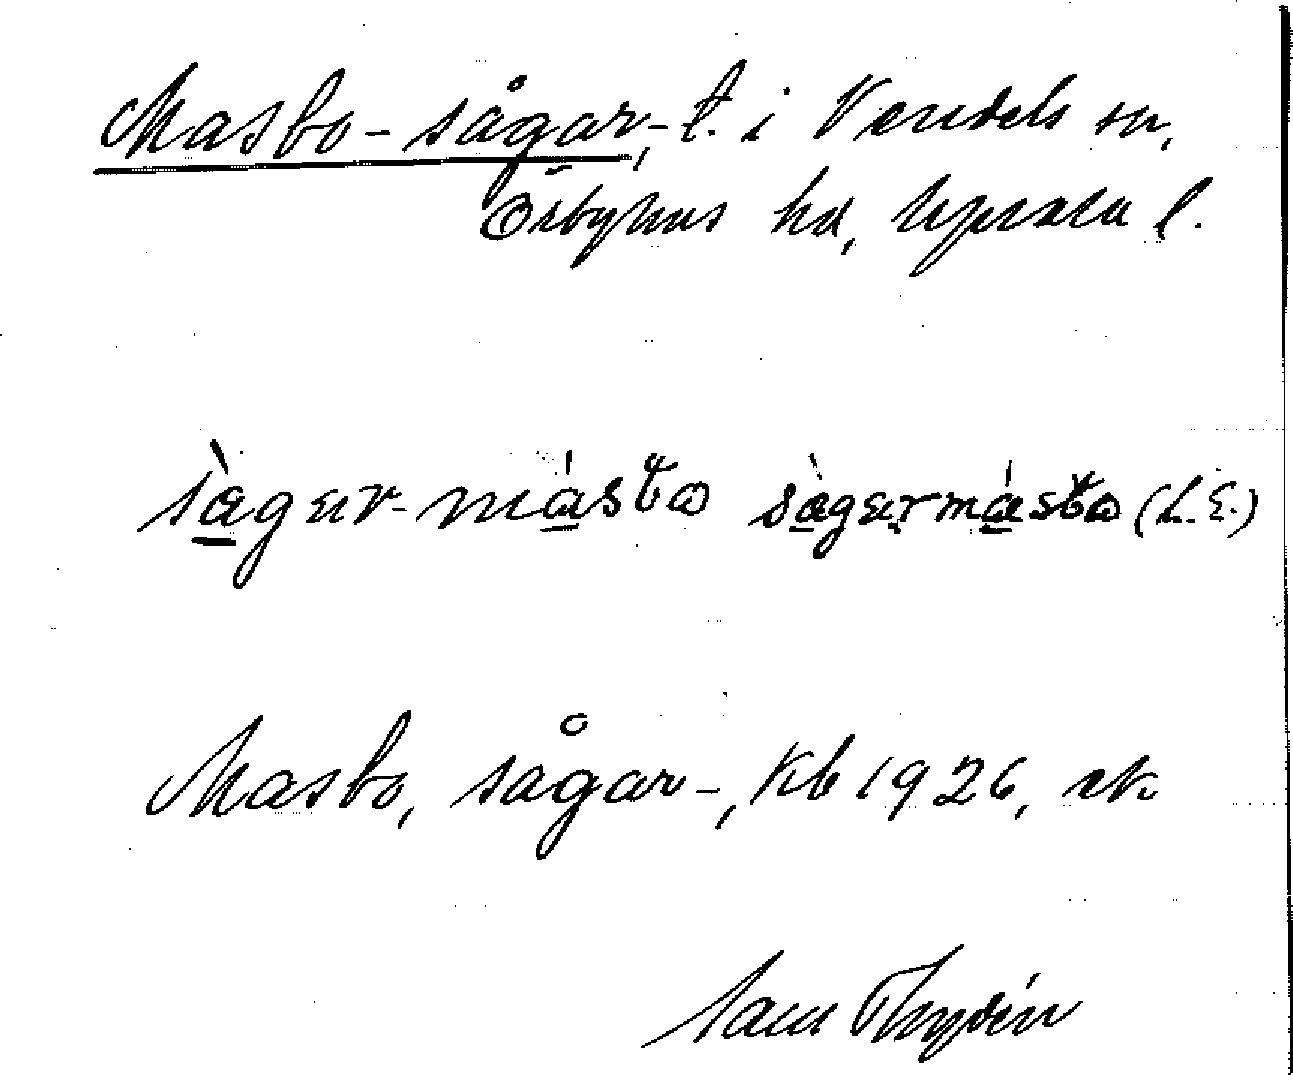 Masbo-sågar, -t. i Vendels sn,
Örbyhus hd, Uppsala l.
sàgar-másbω sàgarmásbω (L.E.)
Masbo, sågar-, Kb 1926, rk
Sam Thydén